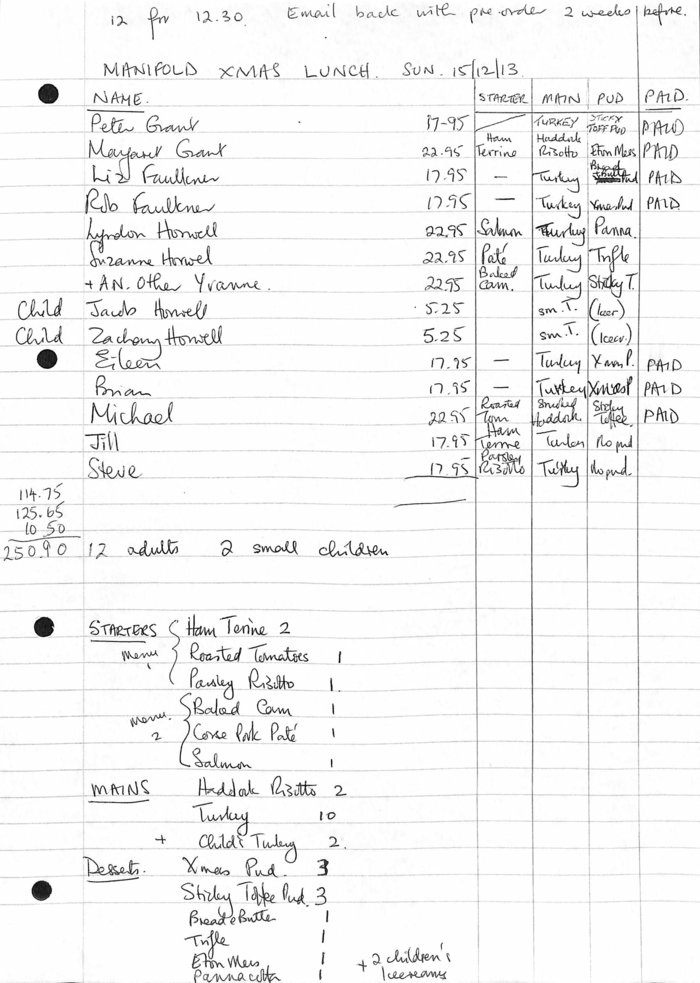 12 for 12.30. Email back with pre-order 2 weeks before.
MANIFOLD XMAS LUNCH. SUN. 15/12/13.
NAME. STARTER MAIN PUD PAID.
Peter Grant 17-95 TURKEY STICKY TOFF PUD PAID
Margaret Grant 22.95 Ham Terrine Haddock Risotto Eton Mess PAID
Liz Faulkner 17.95 — Turkey Bread & Butt Pud PAID
Rob Faulkner 17.95 — Turkey Xmas Pud PAID
Lyndon Horwell 22.95 Salmon Turkey Panna.
Suzanne Horwel 22.95 Paté Turkey Trifle
+ A.N. Other Yvanne. 22.95 Baked Cam. Turkey Sticky T.
Child Jacob Horwell 5.25 sm. T. (Icecr)
Child Zachary Horwell 5.25 sm. T. (Icecr.)
Eileen 17.95 — Turkey Xmas P. PAID
Brian 17.95 — Turkey Xmas P PAID
Michael 22.95 Roasted Tom Smoked Haddock Sticky Toffee. PAID
Jill 17.95 Ham Terrine Turkey No pud
Steve 17.95 Parsley Risotto Turkey No pud.
114.75
125.65
10 50
250.90 12 adults 2 small children
STARTERS Ham Terine 2
menu 1 Roasted Tomatoes 1
Parsley Risotto 1.
Baked Cam 1
menu. 2 Corse Pork Paté 1
Salmon 1
MAINS Haddock Risotto 2
Turkey 10
+ Child's Turkey 2.
Dessets. Xmas Pud. 3
Sticky Toffee Pud. 3
Bread & Butter 1
Trifle 1
Eton Mess 1 + 2 children's
Pannacotta 1 Icecreams